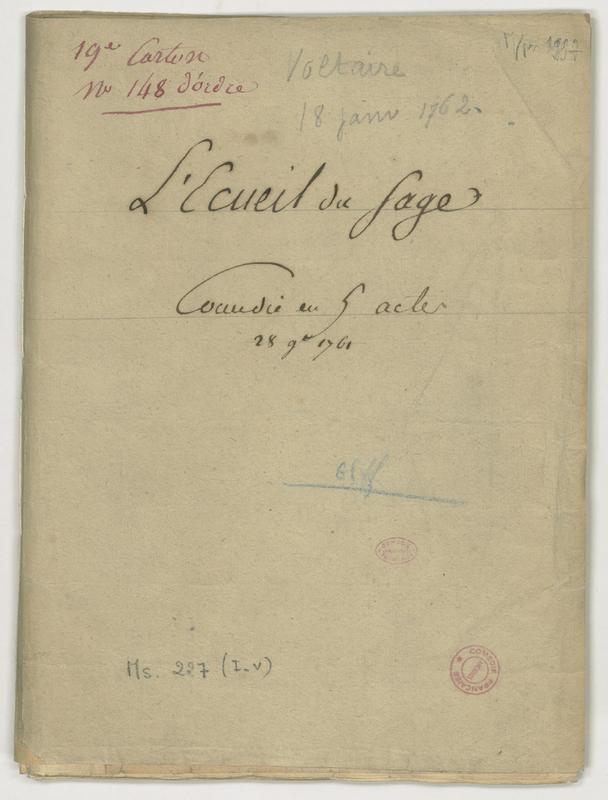 19e Carton
No 148 d'ordre
Voltaire
18 janv 1762.
L'Ecueil du Sage
Comedie en 5 actes
28 9re 1761
Ms. 227 (I-V)
COMEDIE FRANÇAISE